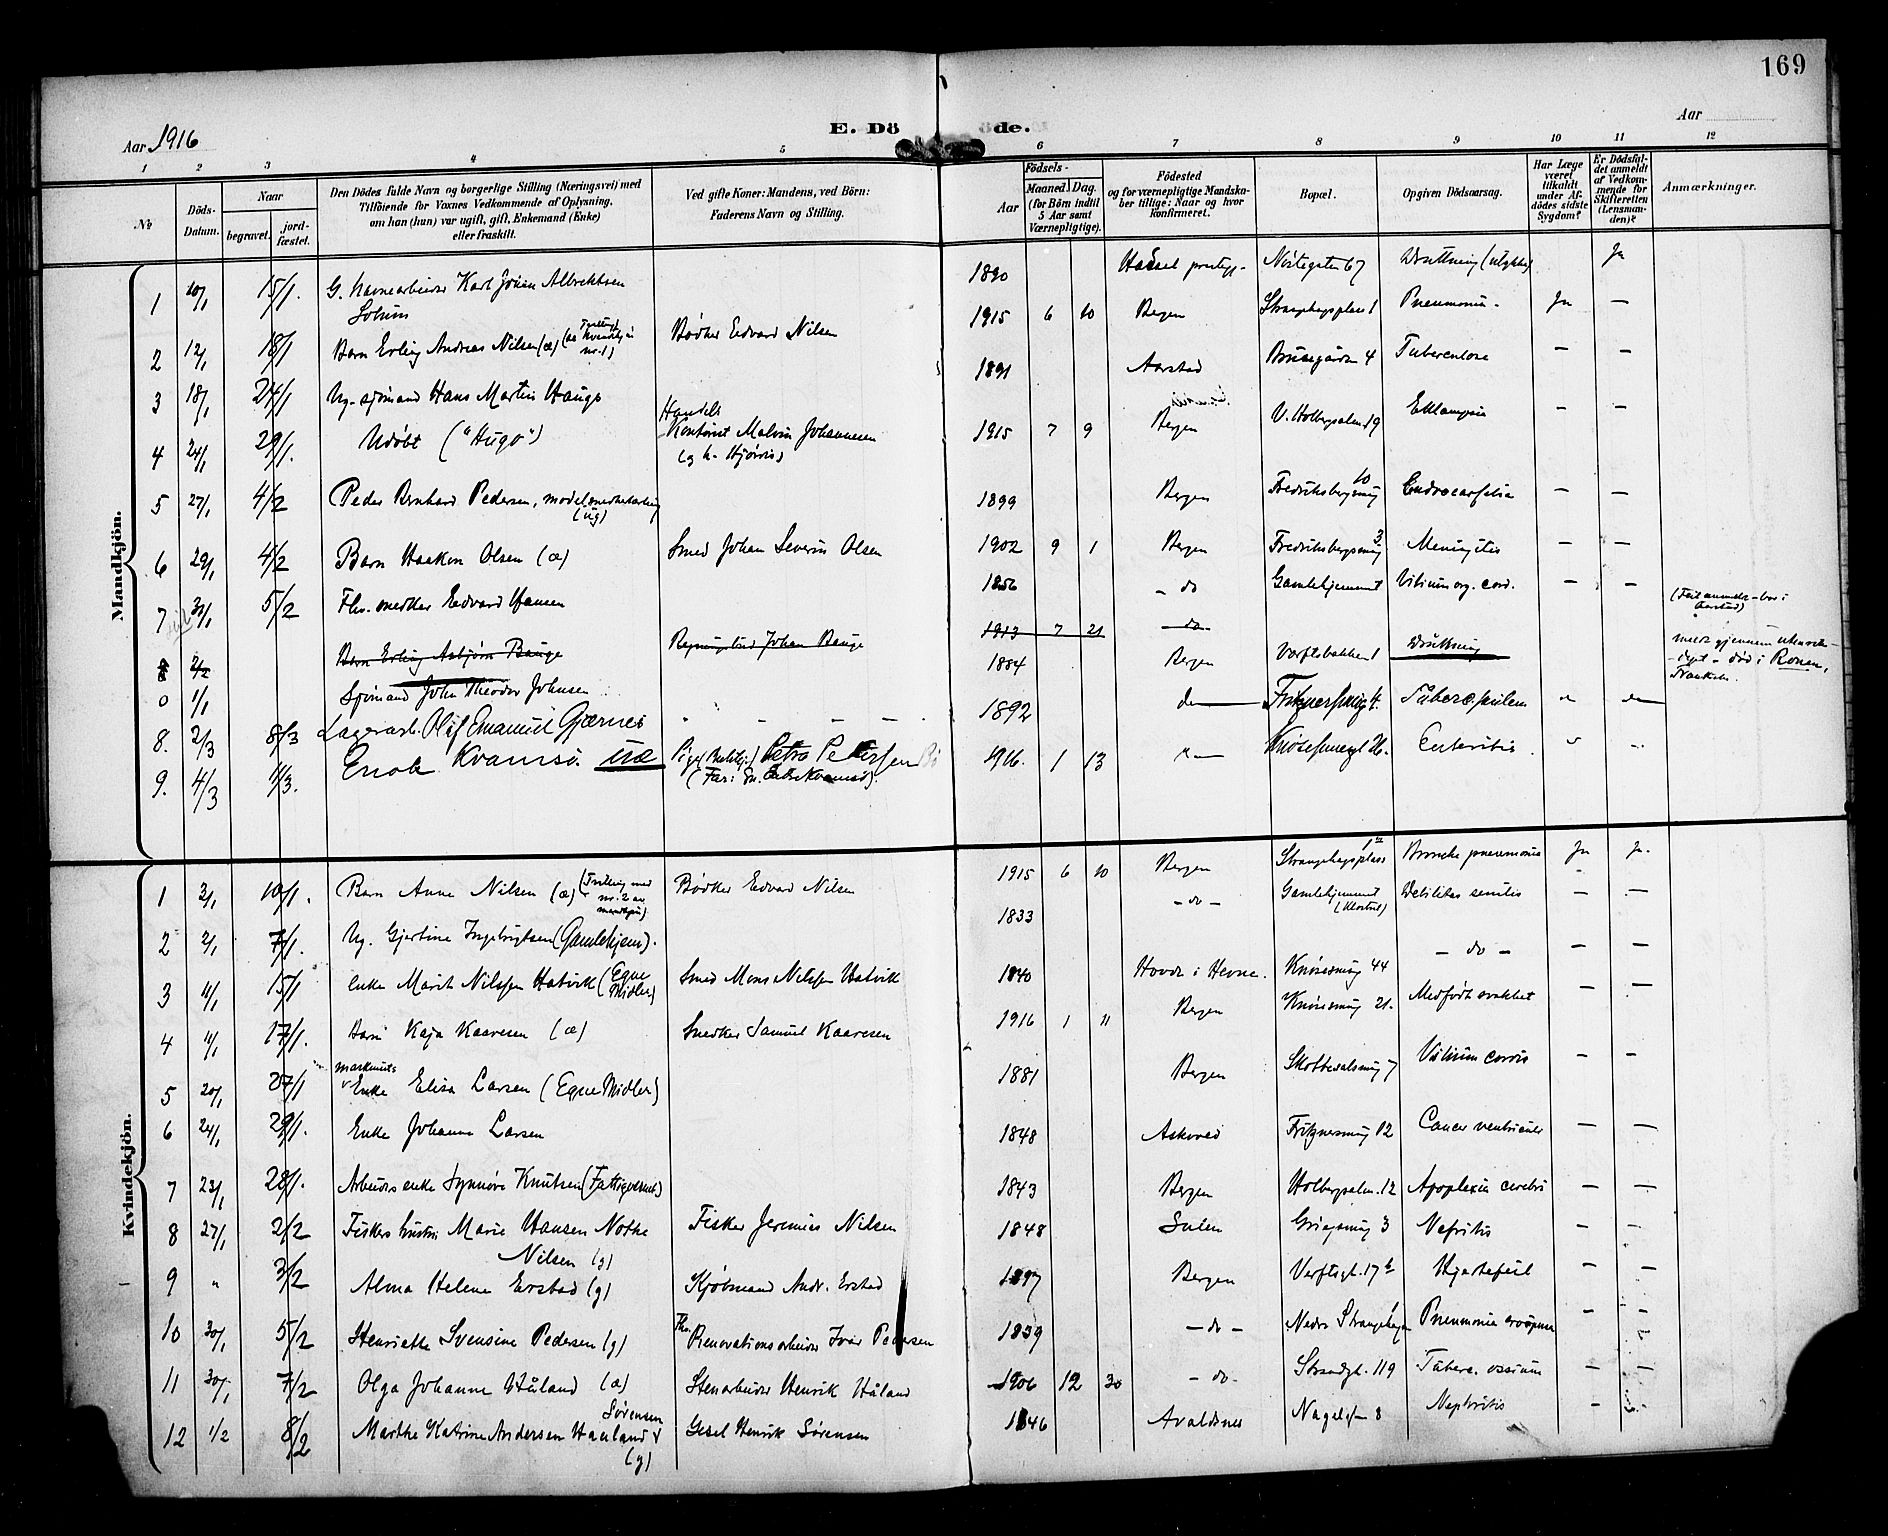 169
Aar 1916
E. Dö
öde.
Aar
1 2 3 4 5 6 7 8 9 10 11 12
№
Döds-Datum.
Naar
begravet. jordfæstet.
Den Dödes fulde Navn og borgerlige Stilling (Næringsvei) med
Tilföiende for Voxnes Vedkommende af Oplysning,
om han (hun) var ugift, gift, Enkemand (Enke)
eller fraskilt.
Ved gifte Koner: Mandens, ved Börn:
Faderens Navn og Stilling.
Födsels-
Aar Maaned. Dag.
(for Börn indtil
5 Aar samt
Værnepligtige).
Födested
og for værnepligtige Mandska-
ber tillige: Naar og hvor
konfirmeret.
Bopæl.
Opgiven Dödsaarsag.
Har Læge
været
tilkaldt
under Af-
dödes sidste
Sygdom?
Er Dödsfal-
det anmeldt
af Vedkom-
mende for
Skifteretten
(Lensman-
den)?
Anmærkninger.
Mandkjön.
1 10/1 15/1. G. havnearbeider Karl Johan Albrektsen 1890 Nöstegaten 67 Druktning (ulykke) Ja
2 12/1 18/1 Barn Erling Andreas Nilsen (æ) Bödker Edvard Nilsen 1915 6 10 Bergen Strangehagsplass 1 Pneumonia Ja —
3 18/1 24/1 Ug. sjömand Hans Martin Hauge 1891 Aarstad 4 Tuberculose — —
4 24/1 29/1. Udöbt ("Hugo") Handels Kontorist Malvin Johannesen 1915 7 9 Bergen V. Holbergsalm. 19 Eklampsia — —
5 27/1 4/2 Peder Bernhard Pedersen, (ug) 1899 Bergen Fredriksbergsmug 10 — —
6 29/1 4/2 Barn Haakon Olsen (æ) Smed Johan Severin Olsen 1902 9 1 Bergen Fredriksbergsmug 3 Meningitis — —
7 5/2 Fhv. snedker Edvard Hansen 1856 - do Gamlehjemmet Vitium org. cord. — —
8 2/2 Barn Erling Asbjörn Bauge Johan Bauge 1913 7 21 do
(Feil anmeldt - bor i Aarstad)
0 1/1 Sjömand John Theodor Johnsen 1884 Bergen Verftsbakken 1 Druktning
meldt gjennem - död i Rouen, Frankrike.
8. 2/3 8/3 Lagerarb. Olaf Emanuel Gjernes 1892 do Fritznersmug 4. Tubercl. pulm
9. 4/3 11/3. Enok Kvamsö. uæ Pige Petra Petersen 1916. 1 13 Knösesmuget 26. Enteritis
Kvindekjön.
1 3/1 10/1. Barn Anna Nilsen (æ) (Tvilling med nr. 2 av mandkjön) Bödker Edvard Nilsen 1915 6 10 Bergen Strangehagsplass 1 Broncho pneumonia Ja Ja.
2 2/1 7/1. Ug. Gjertine Ingebrigtsen (Gamlehjem). 1833 - do - Gamlehjemmet (Kloster) Debilitas senilis — —
3 11/1 15/1 Enke Marit Nilssen Hatvik (Egne Midler) Smed Mons Nilssen Hatvik 1840 Hovde i Hevne. Knösesmug 44 - do - — —
4 11/1 17/1. Barn Kaja Kaaresen (æ) Snedker Samuel Kaaresen 1916 1 11 Bergen Knösesmug 21. Medfödt svakhet — —
5 20/1 27/1 Enke Elisa Larsen (Egne Midler) 1881 Bergen Skottesalsmug 7 Vitium cordis — —
6 24/1 29/1. Enke Johanne Larsen 1848 Askevold Fritznersmug 12 Cancer ventriculi — —
7 23/1 28/1. Arbeiders enke Synnöve Knutsen (Fattigvesenet) 1843 Bergen Holbergsalm. 12 Apoplexia cerebri — —
8 27/1 2/2 Fiskers hustru Marie Hansen Nothe Nilsen (g) Fisker Jeremias Nilsen 1848 Sulen Griegsmug 3 Nefritis — —
9 " 3/2 Alma Helene Erstad (g) Kjöbmand Andr. Erstad 1897 Bergen Verftsgt. 17b Hjertefeil — —
10 30/1 5/2 Henriette Svensine Pedersen (g) Fhv. Renovationsarbeider Ivar Pedersen 1839 - do - Nedre Strangehagen Pneumonia crouposa — —
11 30/1 7/2 Olga Johanne Håland (æ) Stenarbeider Henrik Håland 1906 12 30 - do - Strandgt. 119 Tuberc. ossium — —
12 1/2 8/2 Marthe Katrine Andersen Hauland Sörensen (g) Gesel Henrik Sörensen 1846 Avaldsnes 8 Nephritis —